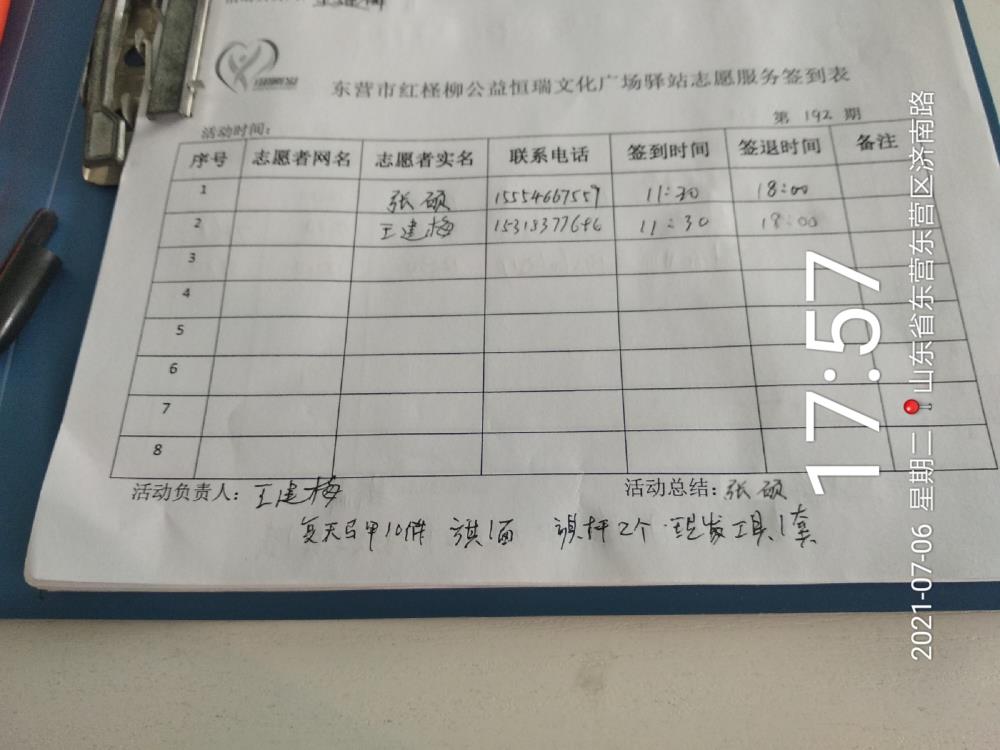 王建梅
东营市红柽柳公益恒瑞文化广场驿站志愿服务签到表
第 192 期
活动时间：
序号 志愿者网名 志愿者实名 联系电话 签到时间 签退时间 备注
1 张硕 15554667559 11:30 18:00
2 王建梅 11:30 18:00
3
4
5
6
7
8
活动负责人：王建梅 活动总结：张硕
夏天马甲10件 旗1面 旗杆2个 理发工具1套
17:57
2021-07-06 星期二 山东省东营市东营区济南路